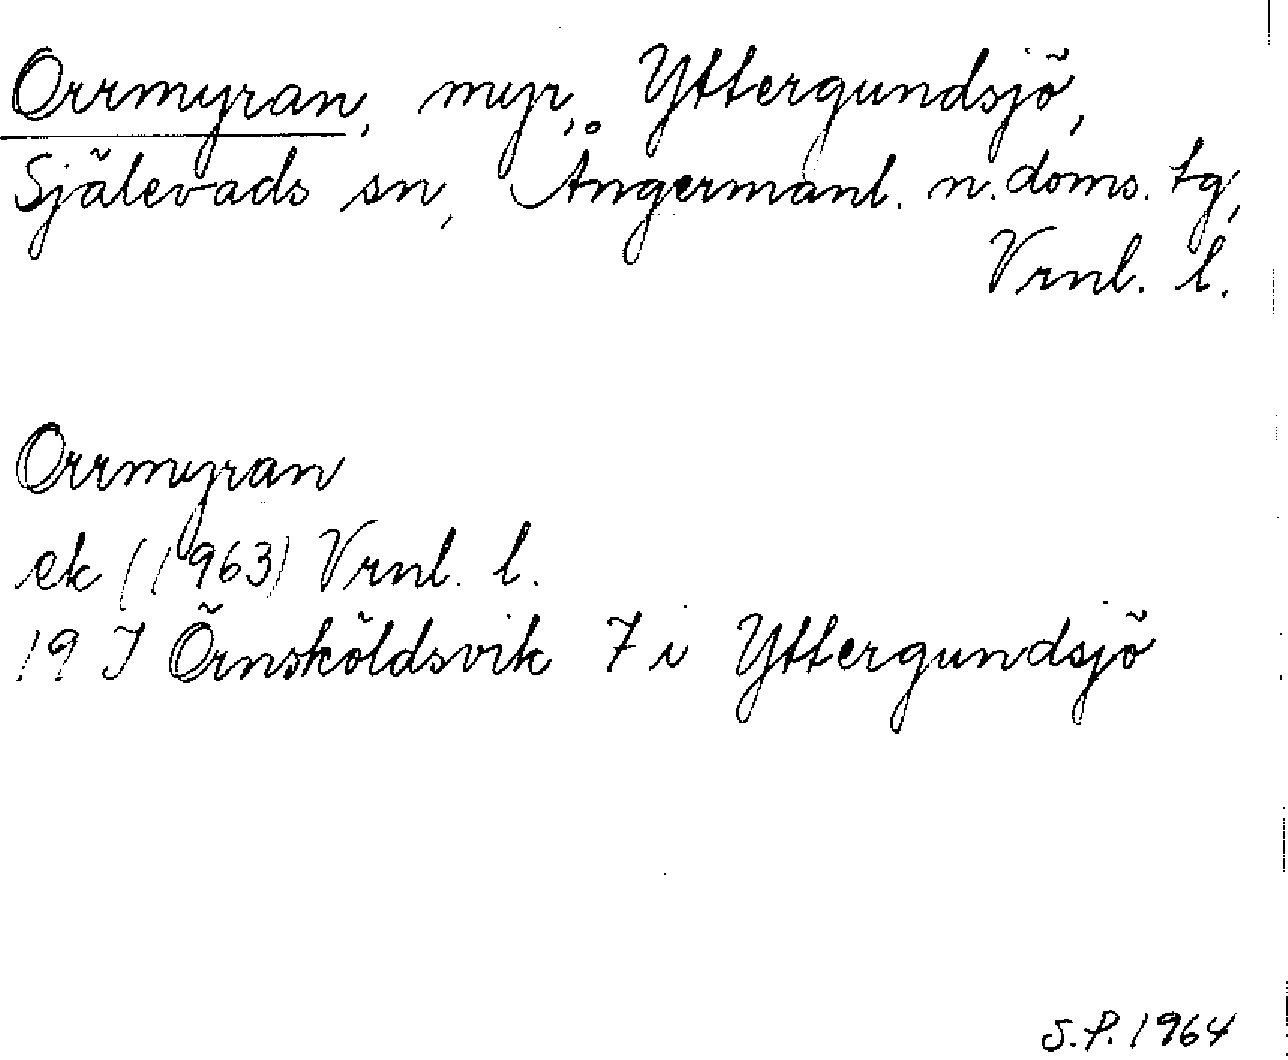 Orrmyran, myr, Yttergundsjö,
Själevads sn, Ångermanl. n. doms. tg,
Vrnl. l.
Orrmyran
ek (1963) Vrnl. l.
19 J Örnsköldsvik 7 i Yttergundsjö
S.P. 1964